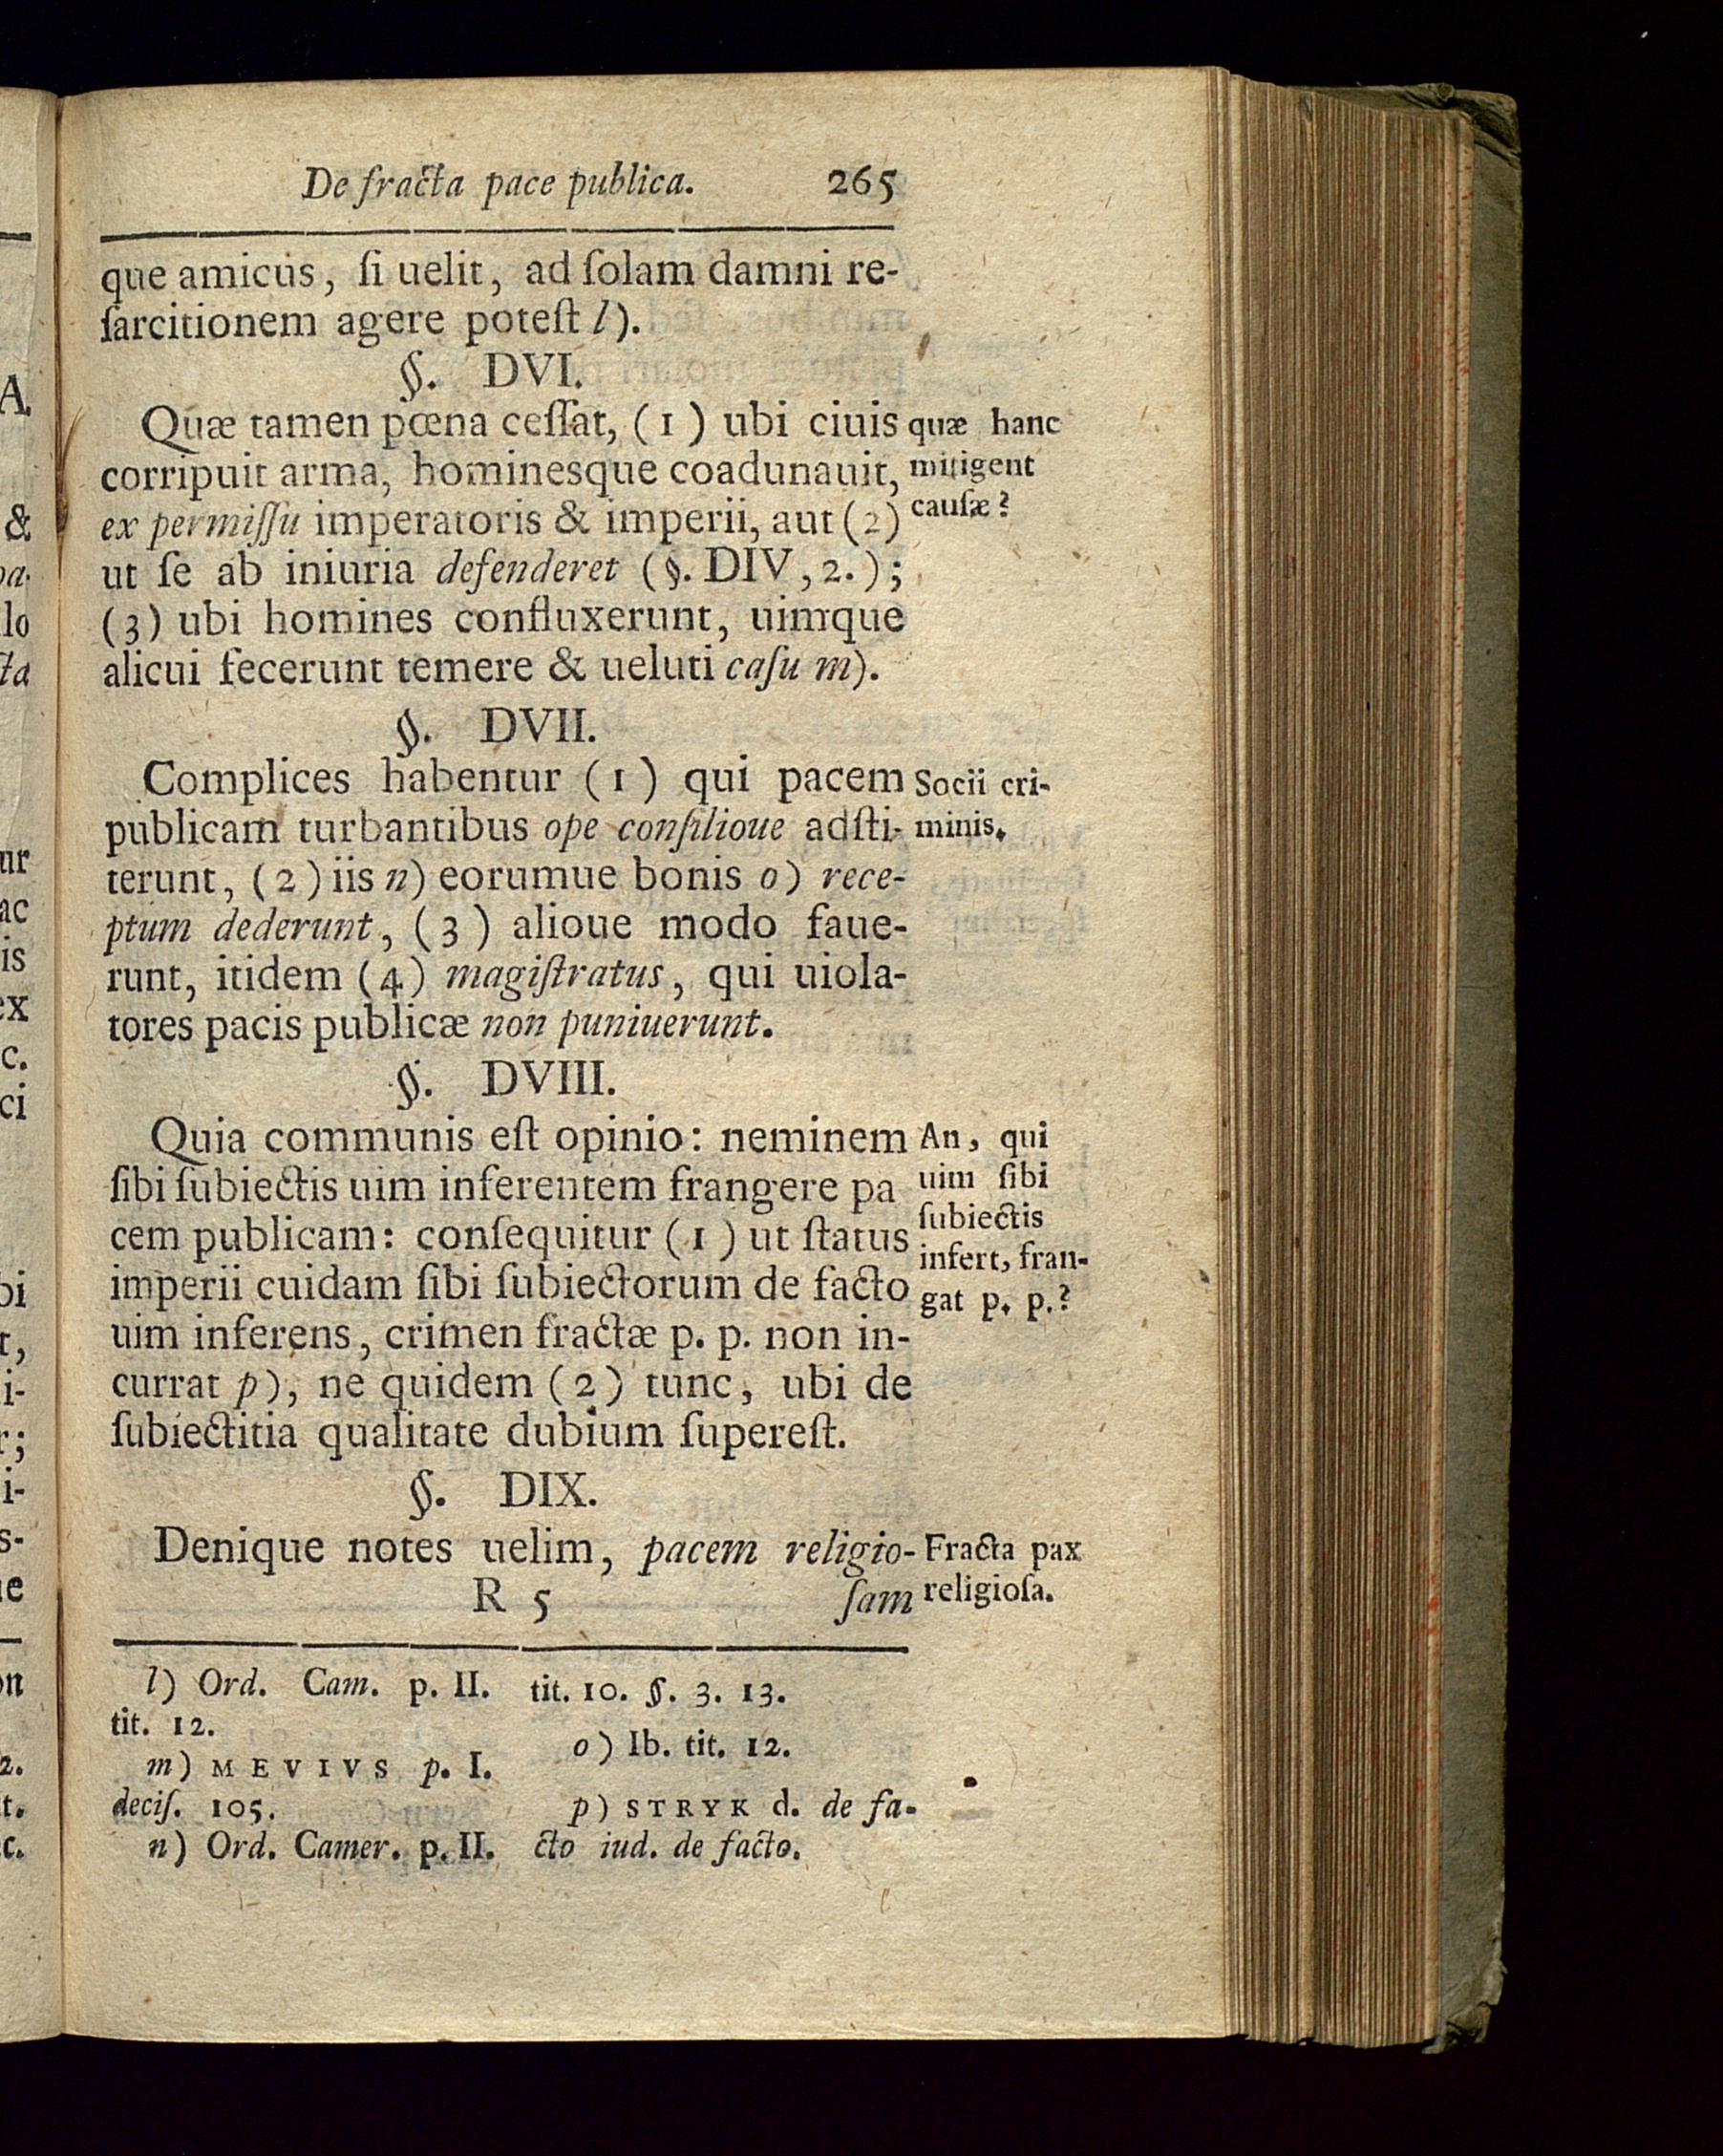 De fracta pace publica. 265
que amicus, ſi uelit, ad ſolam damni re-
ſarcitionem agere poteſt l).
§. DVI.
Quæ tamen pœna ceſſat, (1) ubi ciuis
corripuit arma, hominesque coadunauit,
ex permiſſu imperatoris & imperii, aut (2)
ut ſe ab iniuria defenderet (§. DIV, 2.);
(3) ubi homines confluxerunt, uimque
alicui fecerunt temere & ueluti caſu m).
quæ hanc
mitigent
cauſæ?
§. DVII.
Complices habentur (1) qui pacem
publicam turbantibus ope conſilioue adſti-
terunt, (2) iis n) eorumue bonis o) rece-
ptum dederunt, (3) alioue modo faue-
runt, itidem (4) magiſtratus, qui uiola-
tores pacis publicæ non puniuerunt.
Socii cri-
minis.
§. DVIII.
Quia communis eſt opinio: neminem
ſibi ſubiectis uim inferentem frangere pa
cem publicam: conſequitur (1) ut ſtatus
imperii cuidam ſibi ſubiectorum de facto
uim inferens, crimen fractæ p. p. non in-
currat p), ne quidem (2) tunc, ubi de
ſubiectitia qualitate dubium ſupereſt.
An, qui
uim ſibi
ſubiectis
infert, fran-
gat p. p.?
§. DIX.
Denique notes uelim, pacem religio-
R 5 ſam
Fracta pax
religioſa.
l) Ord. Cam. p. II.
tit. 12.
m) MEVIVS p. I.
deciſ. 105.
n) Ord. Camer. p. II.
tit. 10. §. 3. 13.
o) Ib. tit. 12.
p) STRYK d. de fa-
cto iud. de facto.